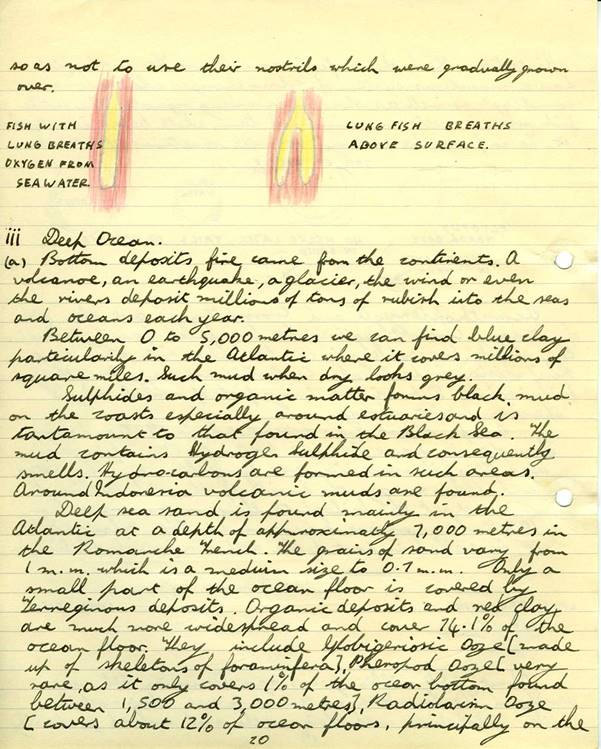 so as not to use their nostrils which were gradually grown
over.
FISH WITH
LUNG BREATHS
OXYGEN FROM
SEAWATER.
LUNG FISH BREATHS
ABOVE SURFACE.
iii Deep Ocean.
(a) Bottom deposits fine came from the continents. A
volcanoe, an earthquake, a glacier, the wind or even
the rivers deposit millions of tons of rubish into the seas
and oceans each year.
Between 0 to 5,000 metres we can find blue clay
particularly in the Atlantic where it covers millions of
square miles. Such mud when dry looks grey.
Sulphides and organic matter forms black mud
on the coasts especially around estuaries and is
tantamount to that found in the Black Sea. The
mud contains Hydrogen Sulphide and consequently
smells. Hydro-carbons are formed in such areas.
Around Indonesia volcanic muds are found.
Deep sea sand is found mainly in the
Atlantic at a depth of approximatly 7,000 metres in
the Romanche Trench. The grains of sand vary from
1 m.m. which is a medium size to 0.1 m.m. Only a
small part of the ocean floor is covered by
Terreginous deposits. Organic deposits and red clay
are much more widespread and cover 74.1% of the
ocean floor. They include Globigeriosic Ooze [made
up of skeletons of foraminfera], Pheropod Ooze [very
rare, as it only covers 1% of the ocean bottom found
between 1,500 and 3,000 metres], Radiolarism Ooze
[covers about 12% of ocean floors, principally on the
20